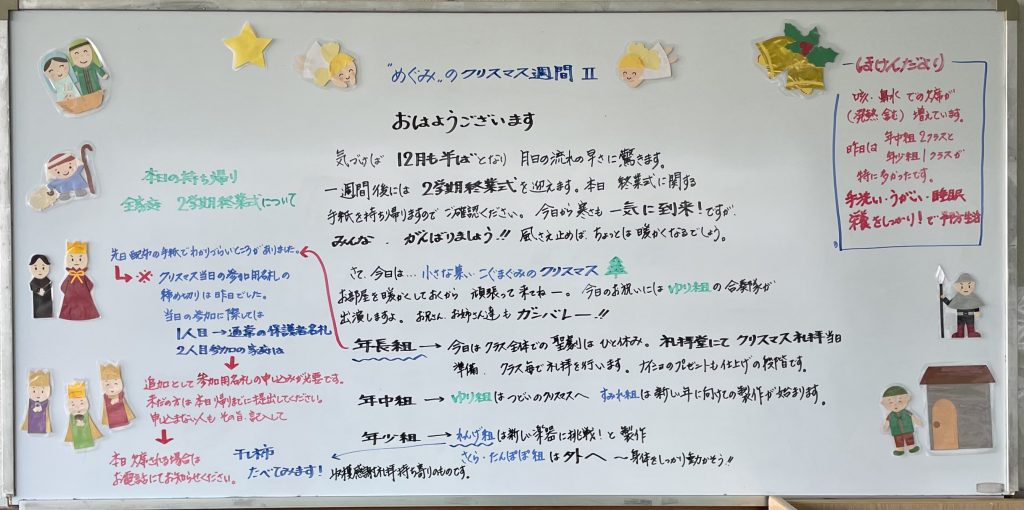 "めぐみ"のクリスマス週間 II
おはようございます
気づけば 12月も半ばとなり 月日の流れの早さに驚きます。
一週間後には 2学期終業式を迎えます。本日 終業式に関する
手紙を持ち帰りますので ご確認ください。 今日から寒さも 一気に到来!ですが、
みんな、がんばりましょう!! 風さえ止めば、ちょっとは暖かくなるでしょう。
さて、今日は… 小さな集い こぐまぐみのクリスマス
お部屋を暖かくしておくから 頑張って来てねー。 今日のお祝いには ゆり組の合奏隊が
出演しますよ。 お兄さん、お姉さん達も ガンバレー!!
年長組 → 今日は クラス全体での 聖劇は ひと休み。 礼拝堂にて クリスマス礼拝当日
準備、クラス毎で礼拝を行います。 ナイショのプレゼントも仕上げの段階です。
年中組 → ゆり組は つどいのクリスマスへ すみれ組は 新しい年に向けての製作が始まります。
年少組 → れんげ組は 新しい楽器に挑戦!と 製作
さくら・たんぽぽ組は 外へ 〜身体をしっかり動かそう!!
本日の持ち帰り
全家庭 2学期終業式について
先日配布の手紙でわかりづらいところがありました。
→※ クリスマス当日の参加用名札の
締め切りは昨日でした。
当日の参加に際しては
1人目→通常の保護者名札
2人目参加の家庭は
追加として参加用名札の申し込みが必要です。
未だの方は本日帰りまでに提出してください。
申込まない人も その旨、記入して
本日欠席される場合は
お電話にてお知らせください。
干し柿
たべてみます! 収穫感謝礼拝持ち寄りのものです。
ほけんだより
咳・鼻水 での欠席が
(発熱含む) 増えています。
昨日は 年中組2クラスと
年少組1クラスが
特に多かったです。
手洗い・うがい・睡眠
栄養をしっかり!で予防生活